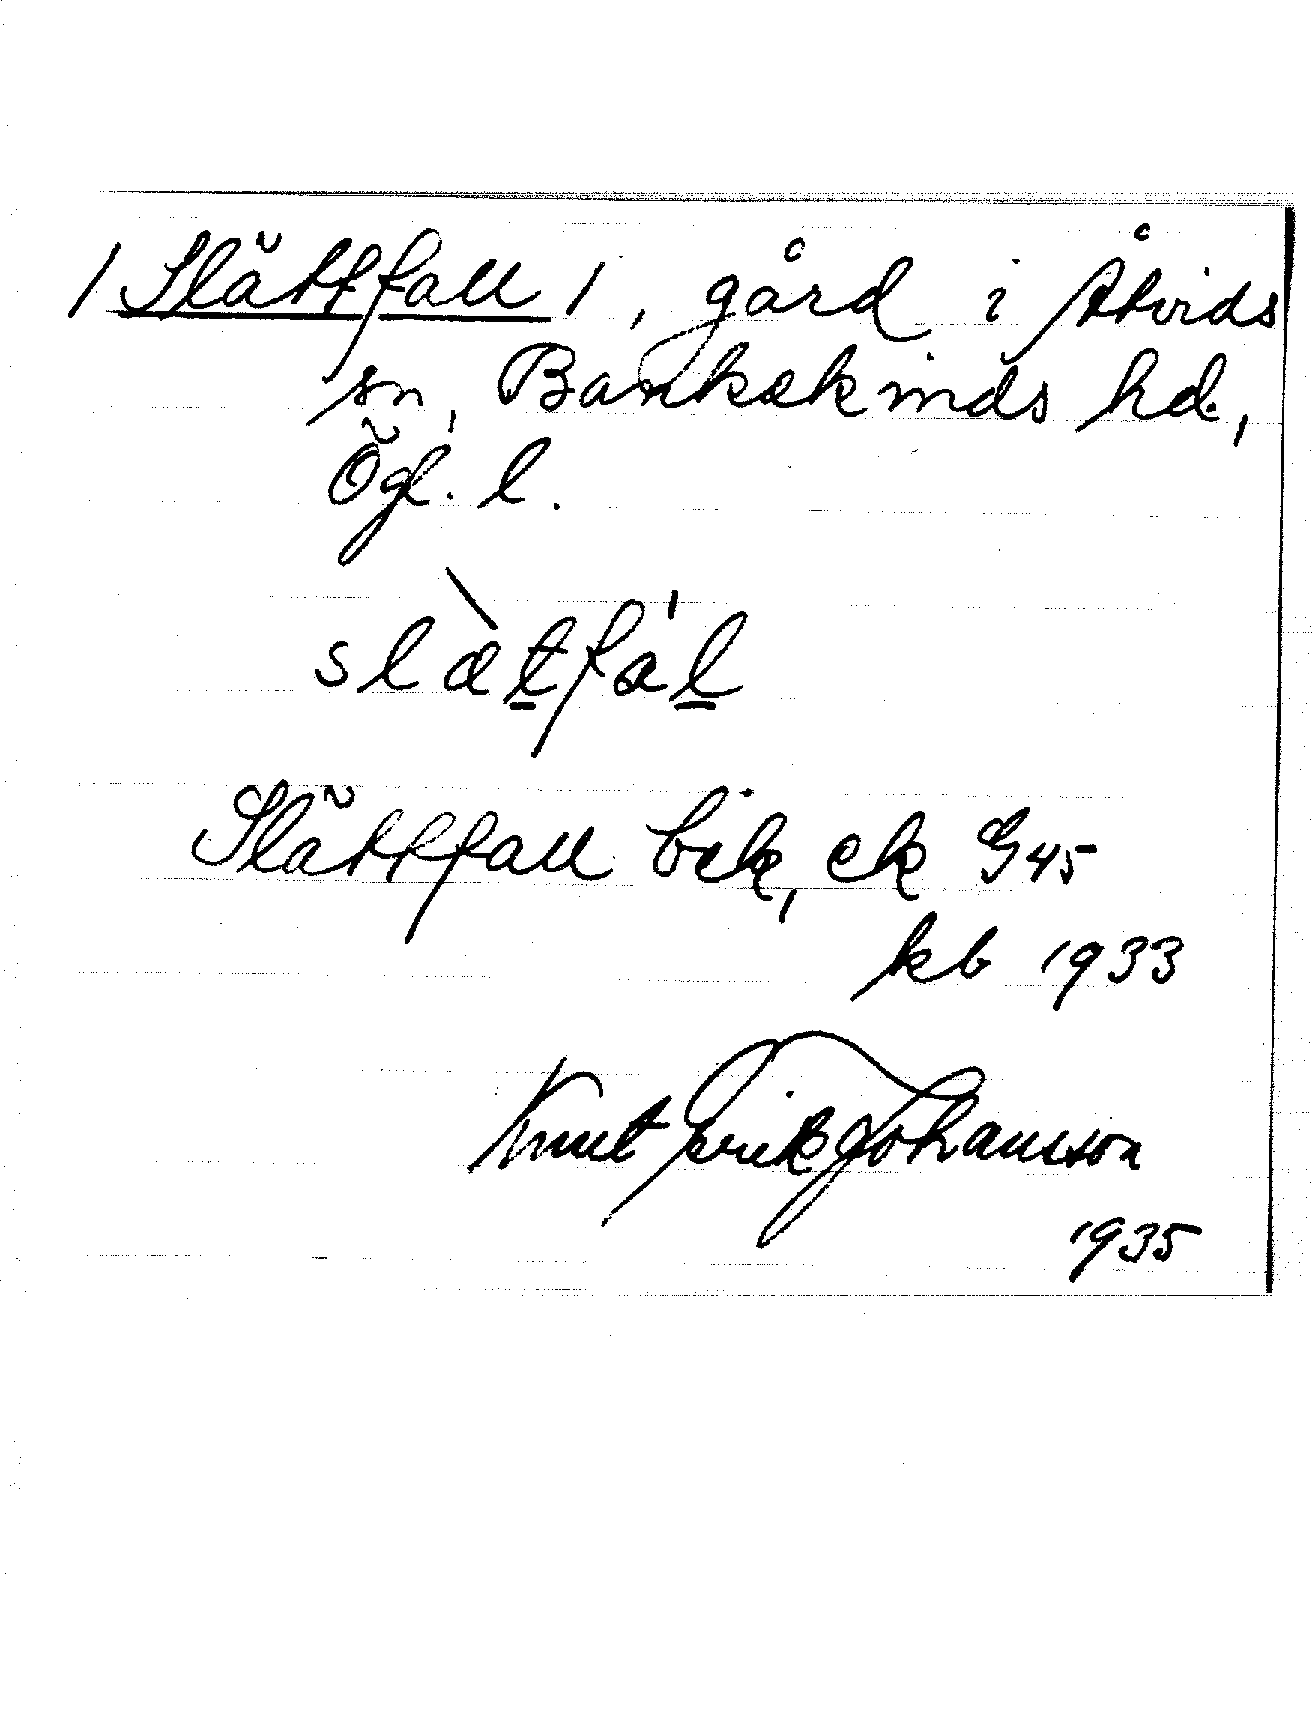 /Slättfall/, gård i Åtvids
sn, Bankekinds hd.,
Ögl. l.
slæ̀tfál
Slättfall bik, ek G45
kb 1933
Knut Erik Johansson
1935